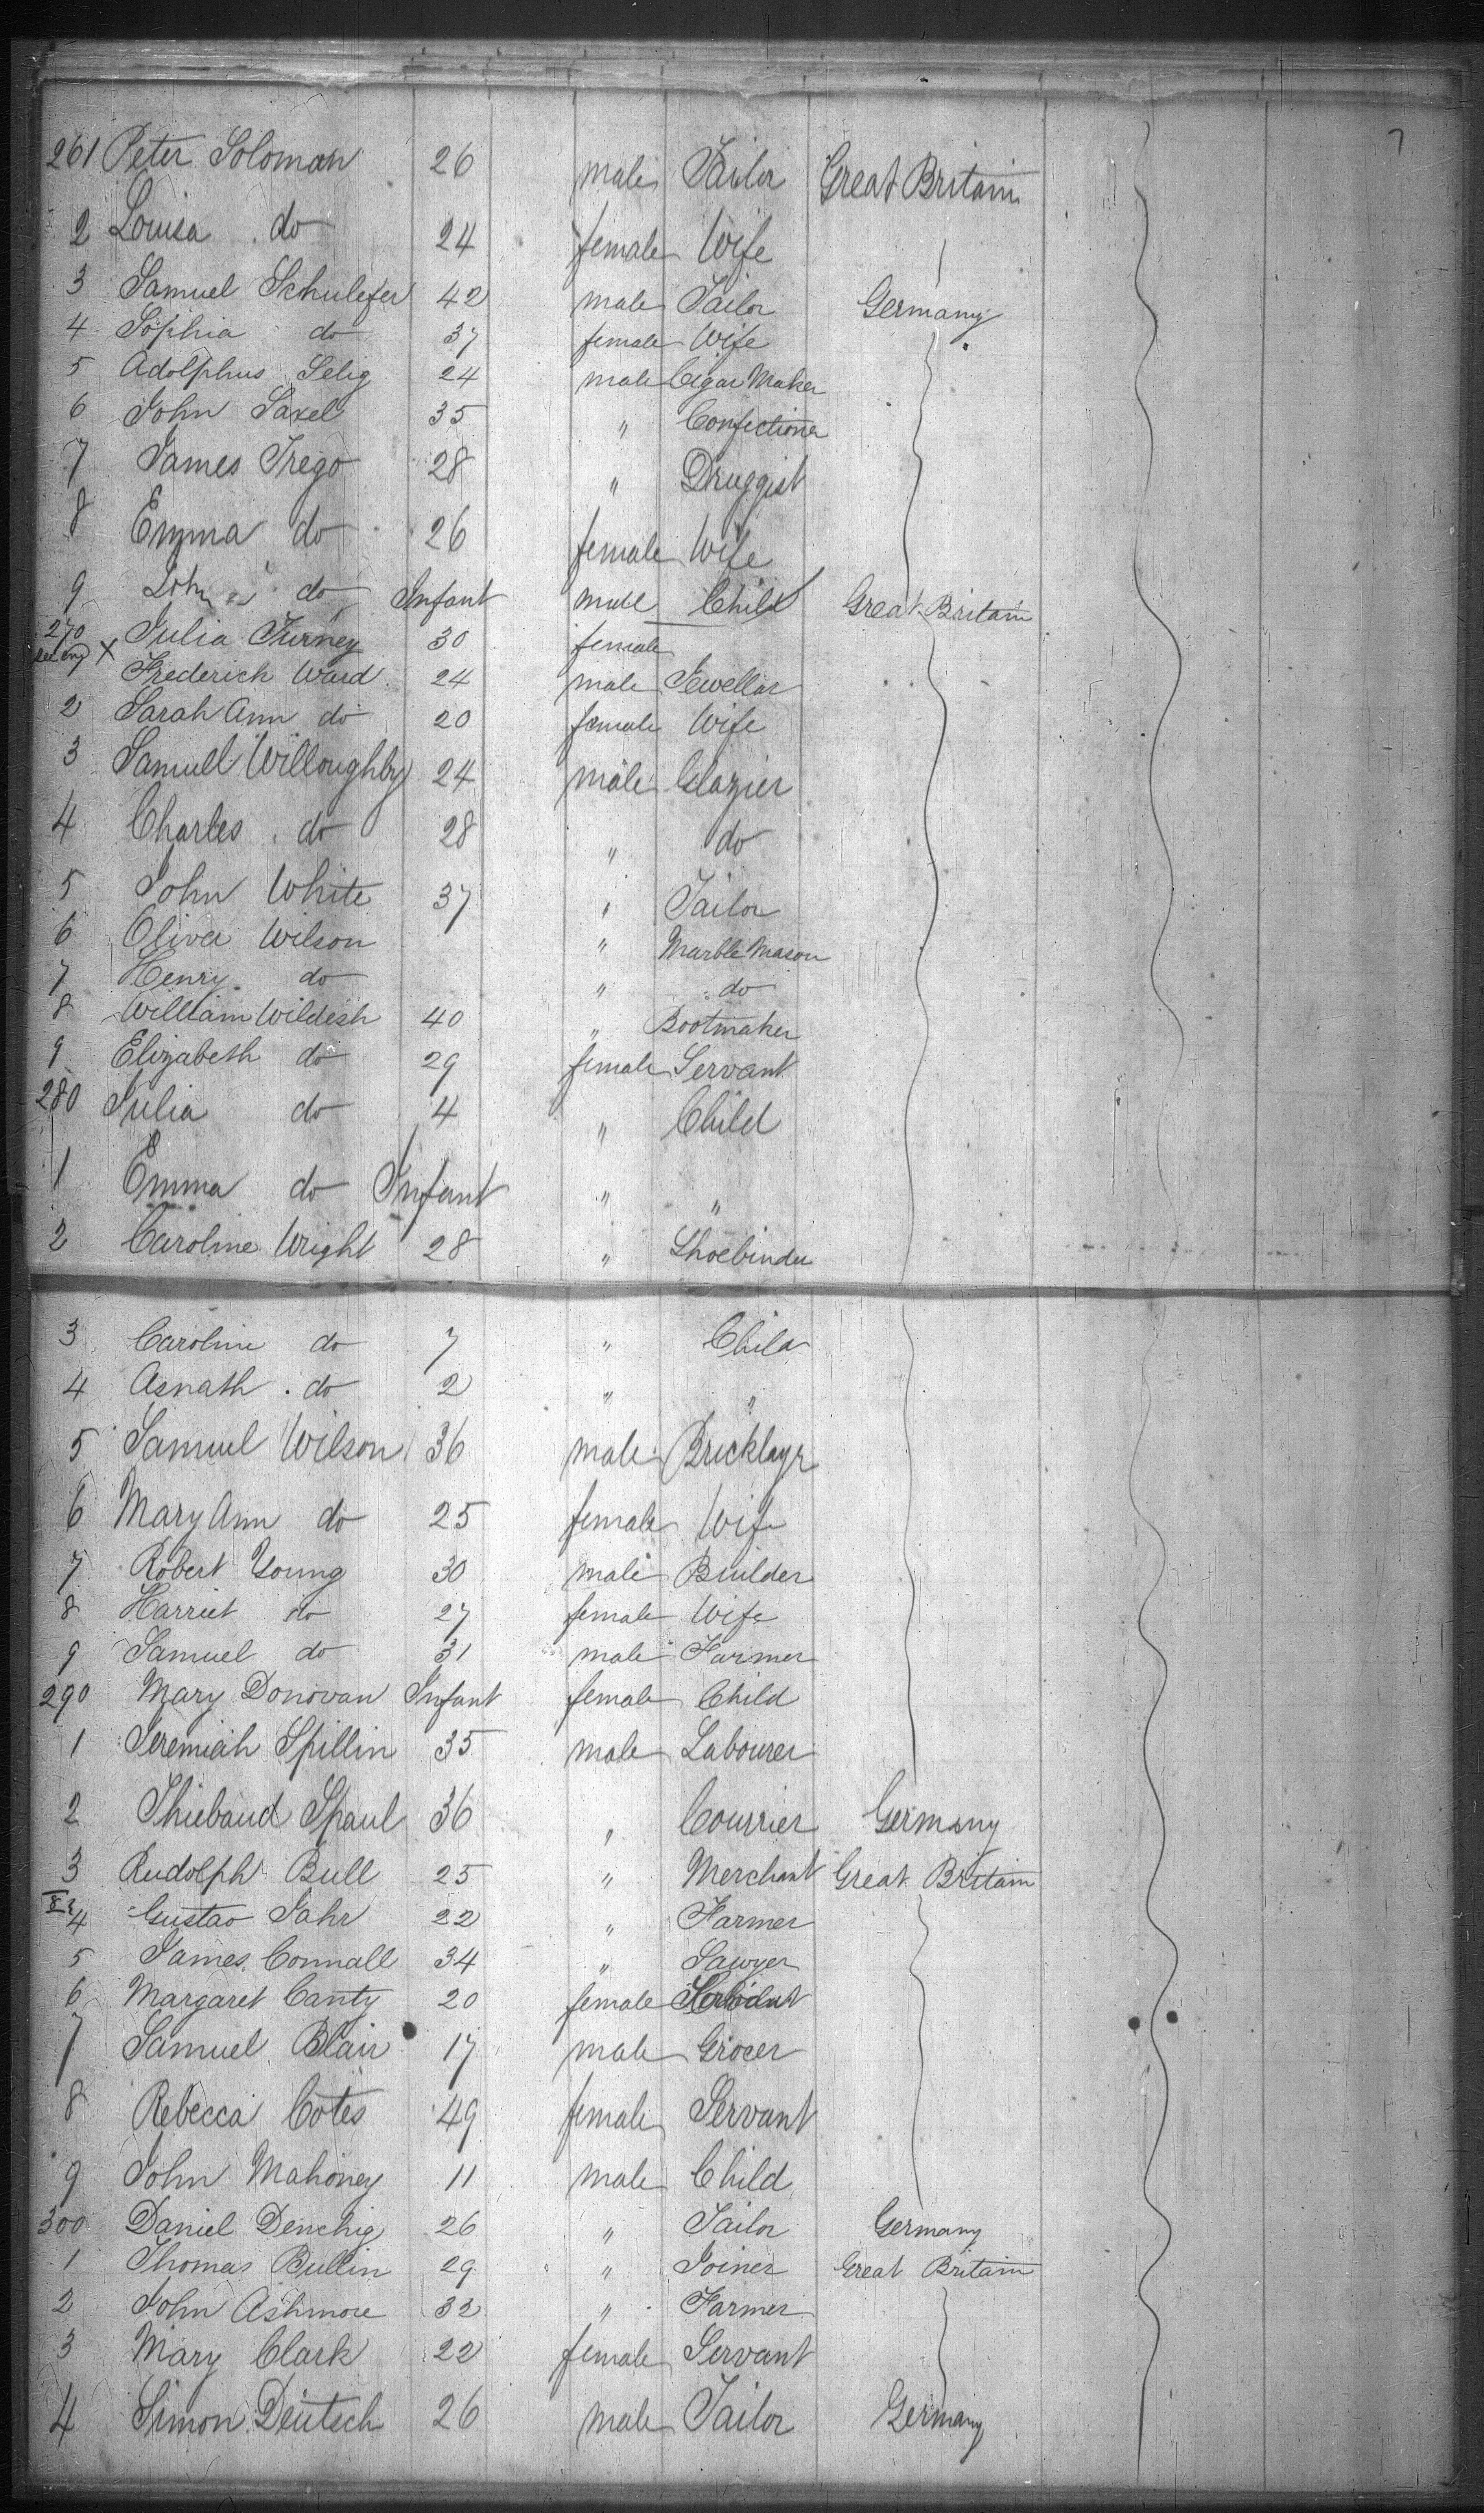 7
261 Peter Soloman 26 male Tailor Great Britain
2 Louisa do 24 female Wife
3 Samuel Schulefer 42 male Tailor Germany
4 Sophia do 37 female Wife
5 Adolphus Selig 24 male Cigar Maker
6 John Saxel 35 " Confectioner
7 James Trego 28 " Druggist
8 Emma do 26 female Wife
9 John do Infant male Child Great Britain
270 X Julia Turney 30 female
1 Frederick Ward 24 male Jewellar
2 Sarah Ann do 20 female Wife
3 Samuel Willoughby 24 male Glazier
4 Charles do 28 " do
5 John White 37 " Tailor
6 Oliver Wilson " Marble Mason
7 Henry do " do
8 William Wildish 40 " Bootmaker
9 Elizabeth do 29 female Servant
280 Julia do 4 " Child
1 Emma do Infant " "
2 Caroline Wright 28 " Shoebinder
3 Caroline do 7 " Child
4 Asnath do 2 " "
5 Samuel Wilson 36 male Bricklayr
6 Mary Ann do 25 female Wife
7 Robert Young 30 male Builder
8 Harriet do 27 female Wife
9 Samuel do 31 male Farmer
290 Mary Donovan Infant female Child
1 Jeremiah Spillin 35 male Labourer
2 Thiebaud Spaul 36 " Courrier Germany
3 Rudolph Bull 25 " Merchant Great Britain
4 Gustav Jahr 22 " Farmer
5 James Connall 34 " Sawyer
6 Margaret Canty 20 female Servant
7 Samuel Blair 17 male Grocer
8 Rebecca Cotes 49 female Servant
9 John Mahoney 11 male Child
300 Daniel Denchig 26 " Tailor Germany
1 Thomas Bullin 29 " Joiner Great Britain
2 John Ashmore 32 " Farmer
3 Mary Clark 22 female Servant
4 Simon Deutsch 26 male Tailor Germany